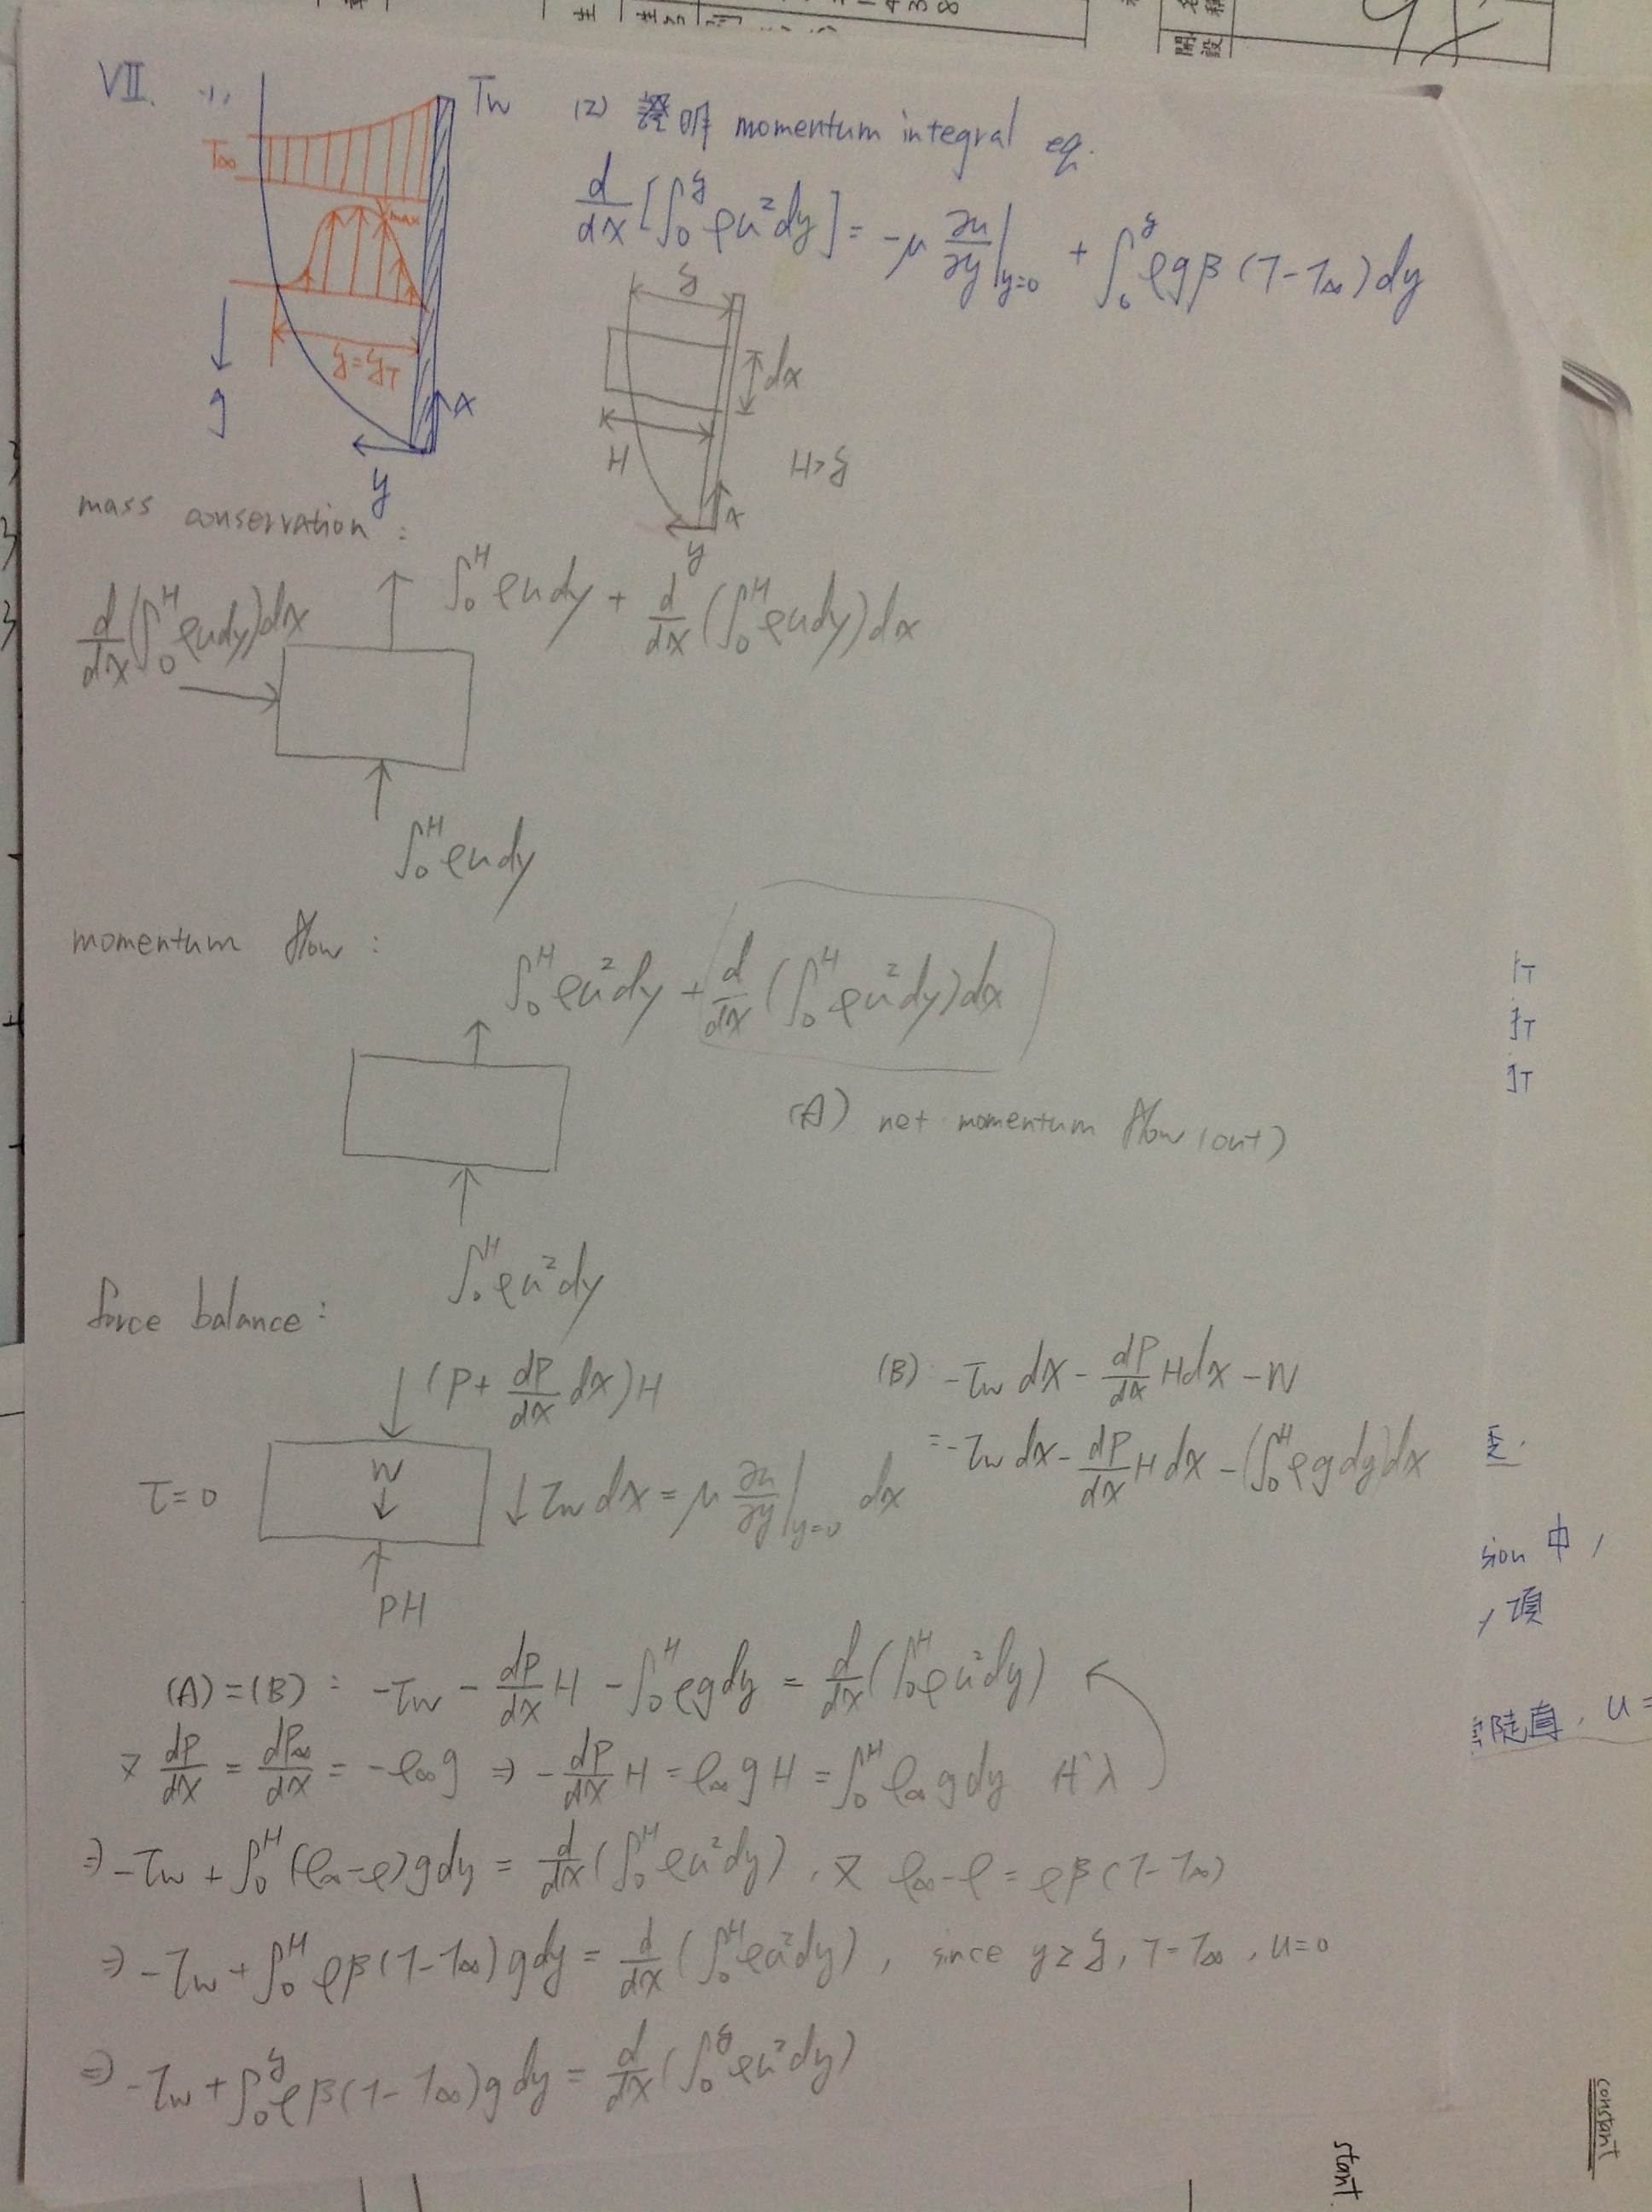 VII. (1)
Tw
T∞
max
δ=δT
g
x
y
(2) 證明 momentum integral eq.
d/dx [∫₀^δ ρu²dy] = -μ ∂u/∂y|y=0 + ∫₀^δ ρgβ(T-T∞)dy
δ
dx
H
H>δ
x
y
mass conservation :
∫₀^H ρudy + d/dx (∫₀^H ρudy)dx
d/dx (∫₀^H ρudy)dx
∫₀^H ρudy
momentum flow :
∫₀^H ρu²dy + d/dx (∫₀^H ρu²dy)dx
(A) net momentum flow (out)
∫₀^H ρu²dy
force balance :
(P + dP/dx dx)H
(B) -τw dx - dP/dx Hdx - W
= -τw dx - dP/dx H dx - (∫₀^H ρgdy)dx
τ=0
W
τw dx = μ ∂u/∂y|y=0 dx
PH
(A)=(B) : -τw - dP/dx H - ∫₀^H ρgdy = d/dx (∫₀^H ρu²dy)
又 dP/dx = dP∞/dx = -ρ∞g ⇒ -dP/dx H = ρ∞gH = ∫₀^H ρ∞gdy 代入
⇒ -τw + ∫₀^H (ρ∞-ρ)gdy = d/dx (∫₀^H ρu²dy) , 又 ρ∞-ρ = ρβ(T-T∞)
⇒ -τw + ∫₀^H ρβ(T-T∞)gdy = d/dx (∫₀^H ρu²dy) , since y≥δ, T=T∞, u=0
⇒ -τw + ∫₀^δ ρβ(T-T∞)gdy = d/dx (∫₀^δ ρu²dy)
sion 中,
項
u=
constant
stant